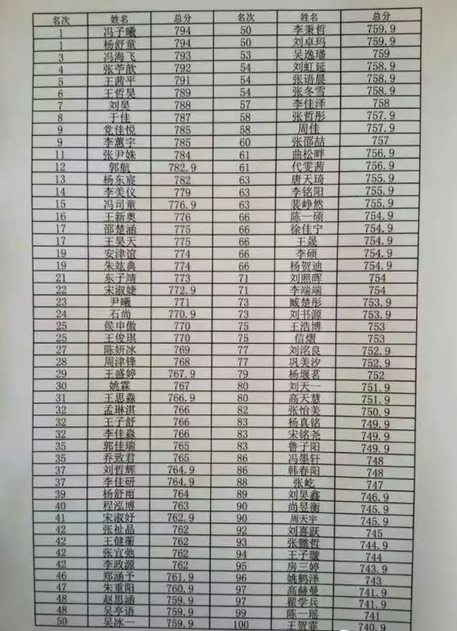 名次 姓名 总分 名次 姓名 总分
1 冯子曦 794 50 李秉哲 759.9
1 杨舒童 794 50 刘卓玛 759.9
3 冯海飞 793 53 吴逸璠 759
4 张苧歆 792 54 刘虹延 758.9
5 王茜平 791 54 张语晨 758.9
6 王哲昊 789 54 张冬雪 758.9
7 刘昊 788 57 李佳泽 758
8 于佳 787 58 张哲彤 757.9
9 党佳悦 785 58 周佳 757.9
9 李蕙宇 785 60 张邵喆 757
11 张尹姝 784 61 曲松畔 756.9
12 郭航 782.9 61 代雯茜 756.9
13 杨东宸 782 63 唐天琦 755.9
14 李美仪 779 63 李铭阳 755.9
15 冯司童 776.9 63 裴峥然 755.9
16 王新奥 776 66 陈一硕 754.9
17 邵楚涵 775 66 徐佳宁 754.9
17 王昊天 775 66 王晟 754.9
19 安津谊 774 66 李硕 754.9
19 朱竑典 774 66 杨贺迪 754.9
21 东子靖 773 71 刘照晖 754
22 宋淑婕 772.9 71 李端端 754
23 尹曦 771 73 臧楚彤 753.9
24 石尚 770.9 73 刘书源 753.9
25 侯申傲 770 75 王浩博 753
25 王俊琪 770 75 信熠 753
27 陈妍冰 769 77 刘洺良 752.9
28 周津锋 768 77 巩美汐 752.9
29 王盛婷 767.9 79 杨堰茗 752
30 姚霖 767 80 刘天一 751.9
31 王思淼 766.9 80 高天慧 751.9
32 孟琳淇 766 82 张怡美 750.9
32 王子舒 766 83 杨真铭 749.9
32 李佳淼 766 83 宋铭尧 749.9
35 郭佳瑞 765 83 鲁子阳 749.9
35 乔致君 765 86 冯墨轩 748
37 刘哲辉 764.9 86 韩春阳 748
37 李佳研 764.9 88 张屹 747
39 杨舒雨 764 89 刘昊鑫 746.9
40 程泓博 763 90 尚昱衡 745.9
41 宋淑妤 762.9 90 周天宇 745.9
42 张祉晶 762 92 刘喜跃 745
42 王健蘅 762 93 张懿哲 744.9
42 张宜弛 762 94 王子璇 744
42 李政源 762 95 房三婷 743.9
46 郑涵予 761.9 96 姚鹤泽 743
47 朱重阳 760.9 97 高赫曼 741.9
48 赵思涵 759.9 97 翟学兵 741.9
48 吴亭语 759.9 99 陈一瑶 741
50 吴冰一 759.9 100 王贺霏 740.9